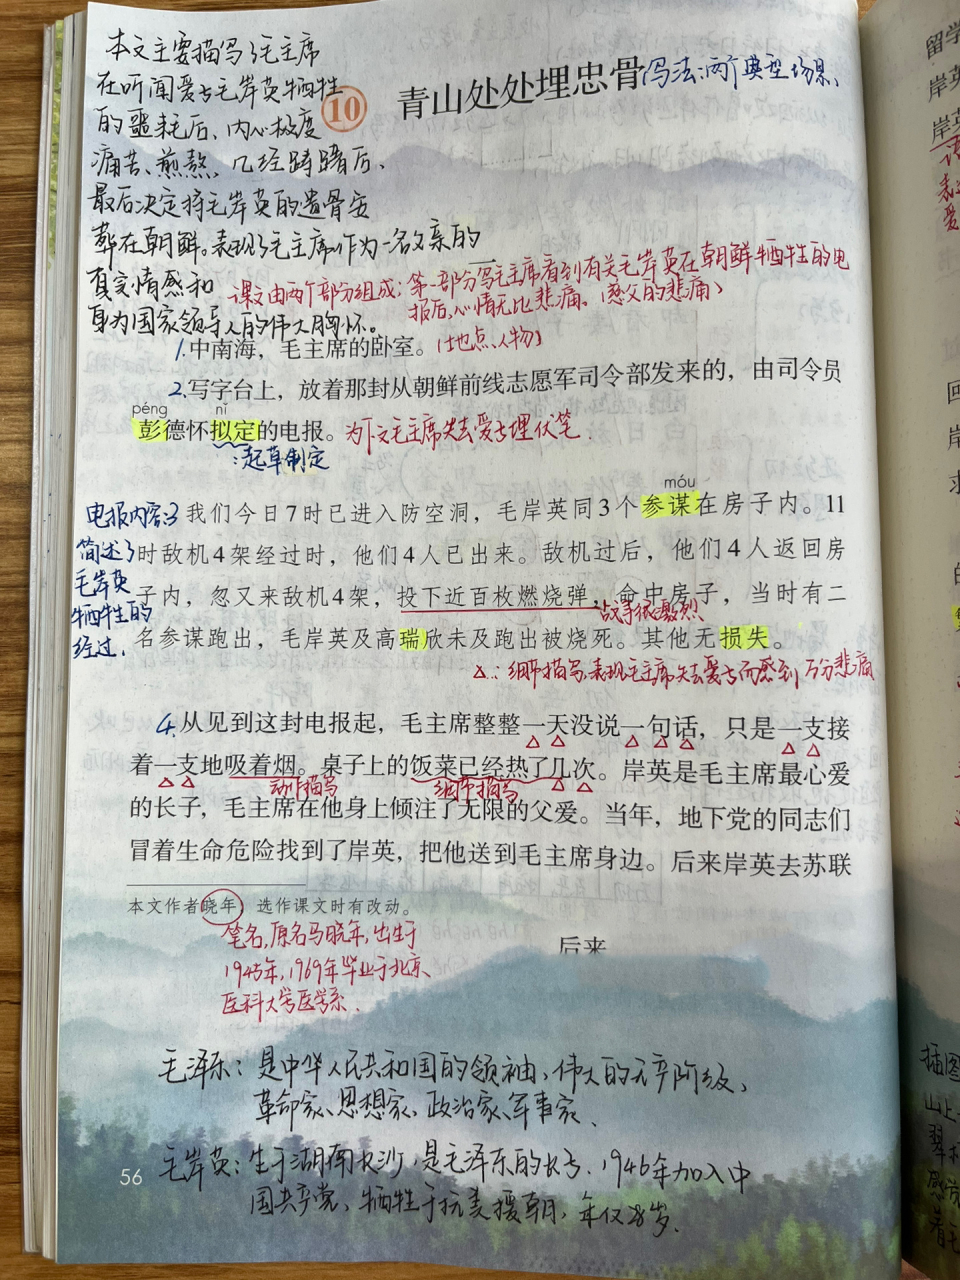 本文主要描写了毛主席
在听闻爱子毛岸英牺牲
的噩耗后、内心极度
痛苦、煎熬,几经踌躇后、
最后决定将毛岸英的遗骨安
葬在朝鲜。表现了毛主席作为一名父亲的
真实情感和
身为国家领导人的伟大胸怀。
10
青山处处埋忠骨
写法:两个典型场景、
课文由两个部分组成:第一部分写主席看到有关毛岸英在朝鲜牺牲的电
报后,心情无比悲痛。(慈父的悲痛)
1.中南海,毛主席的卧室。(地点、人物)
2.写字台上,放着那封从朝鲜前线志愿军司令部发来的,由司令员
péng nǐ
彭德怀拟定的电报。为下文毛主席失去爱子埋伏笔.
:起草制定
móu
电报内容:3我们今日7时已进入防空洞,毛岸英同3个参谋在房子内。11
简述了
时敌机4架经过时,他们4人已出来。敌机过后,他们4人返回房
毛岸英
子内,忽又来敌机4架,投下近百枚燃烧弹,命中房子,当时有二
牺牲的
:战事很激烈
经过.
名参谋跑出,毛岸英及高瑞欣未及跑出被烧死。其他无损失。
△:细节描写,表现毛主席失去爱子而感到万分悲痛
4.从见到这封电报起,毛主席整整一天没说一句话,只是一支接
着一支地吸着烟。桌子上的饭菜已经热了几次。岸英是毛主席最心爱
动作描写
细节描写
的长子,毛主席在他身上倾注了无限的父爱。当年,地下党的同志们
冒着生命危险找到了岸英,把他送到毛主席身边。后来岸英去苏联
本文作者晓年,选作课文时有改动。
笔名,原名马晓年,出生于
1945年,1969年毕业于北京
医科大学医学系.
后来
毛泽东:是中华人民共和国的领袖、伟大的无产阶级、
革命家、思想家、政治家、军事家、
毛岸英:生于湖南长沙,是毛泽东的长子、1946年加入中
国共产党,牺牲于抗美援朝,年仅28岁.
56
留学
岸英
岸
回
岸
求
的
插图
山上
翠
感觉
着